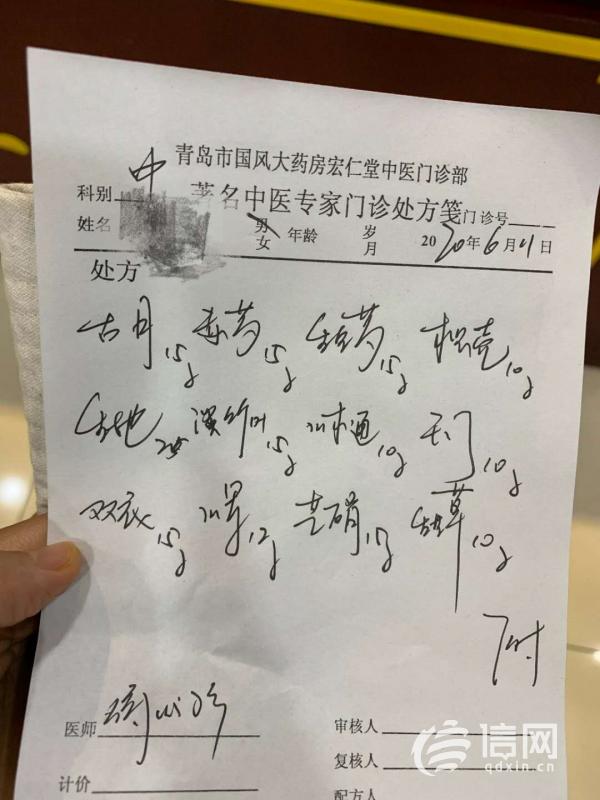 青岛市国风大药房宏仁堂中医门诊部
科别 中 著名中医专家门诊处方笺 门诊号
姓名 男 女 年龄 岁 月 2020年6月11日
处方
古月15g 赤芍15g 15g 枳壳10g
生地 淡竹叶15g 川木通10g 天门10g
双衣15g 12g 15g 10g
7付
医师
审核人
复核人
计价
配方人
信网
qdxin.cn